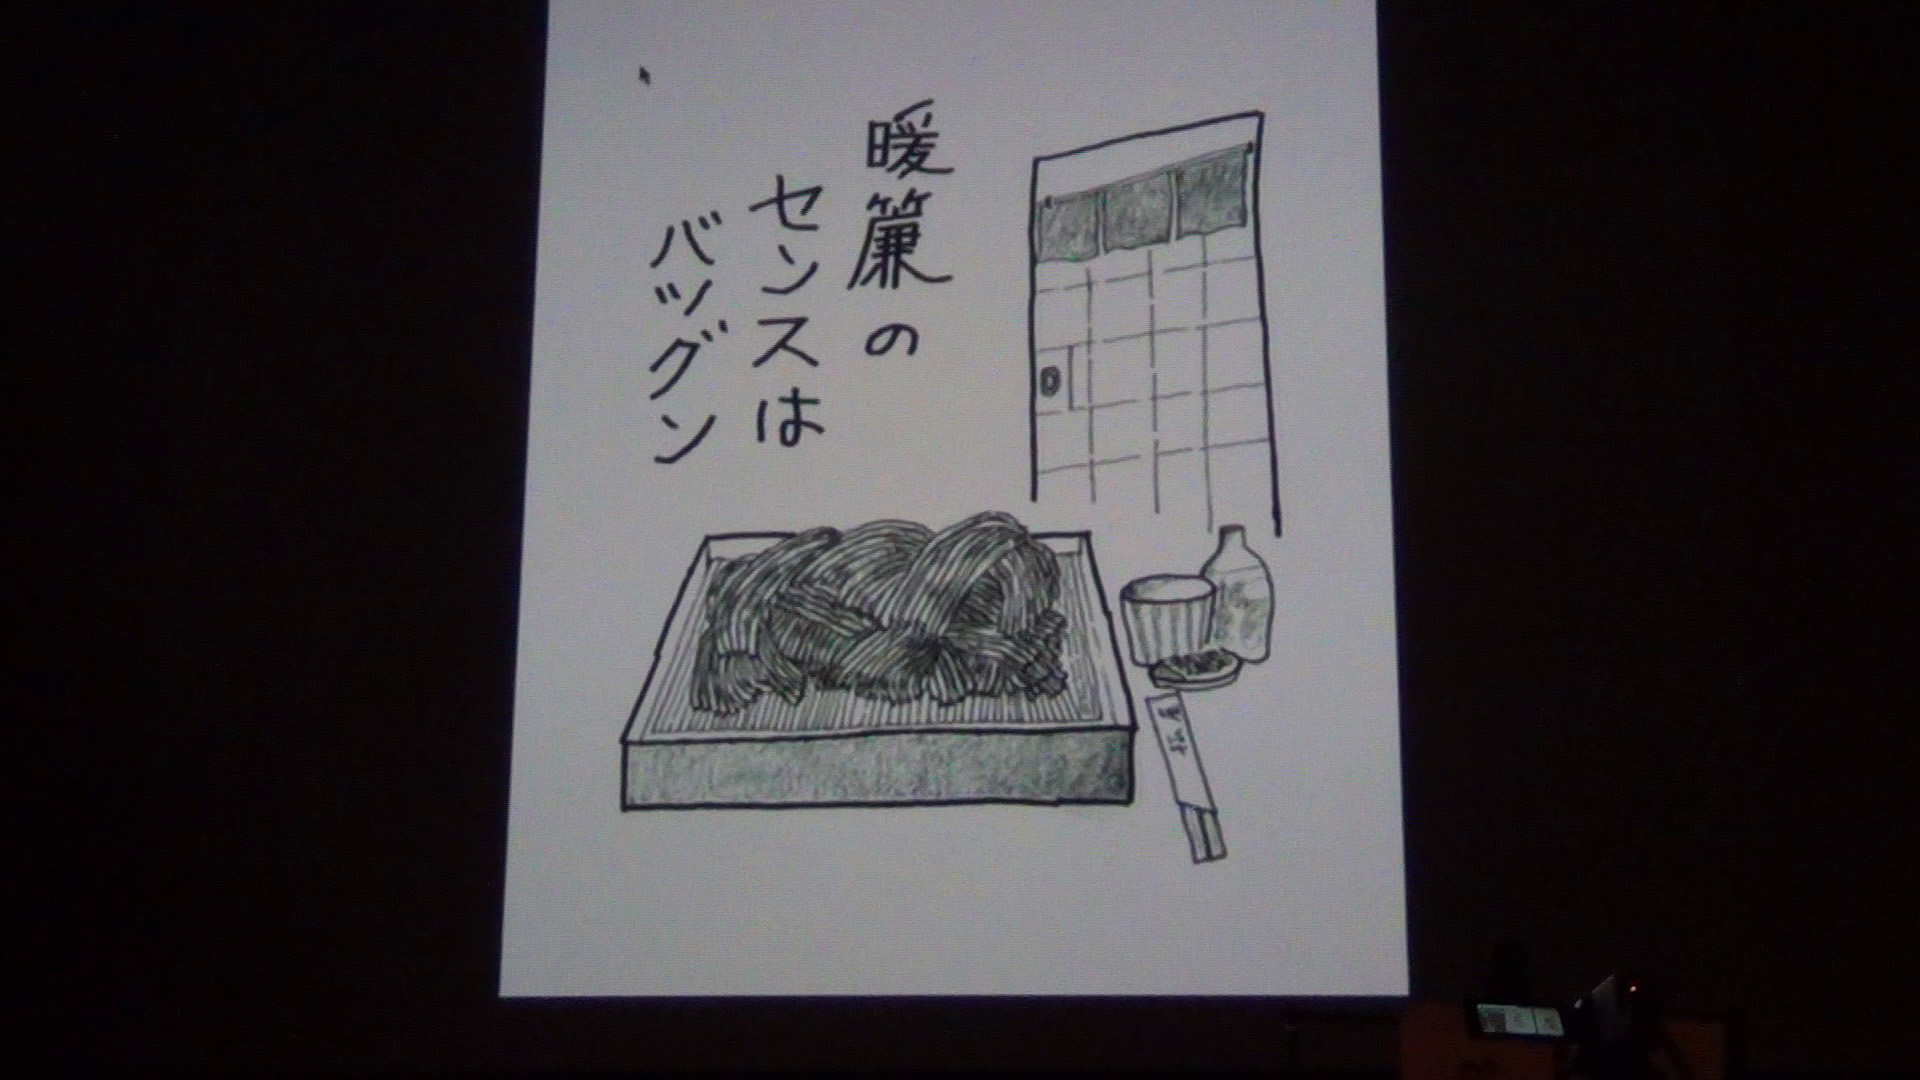 暖簾の
センスは
バツグン